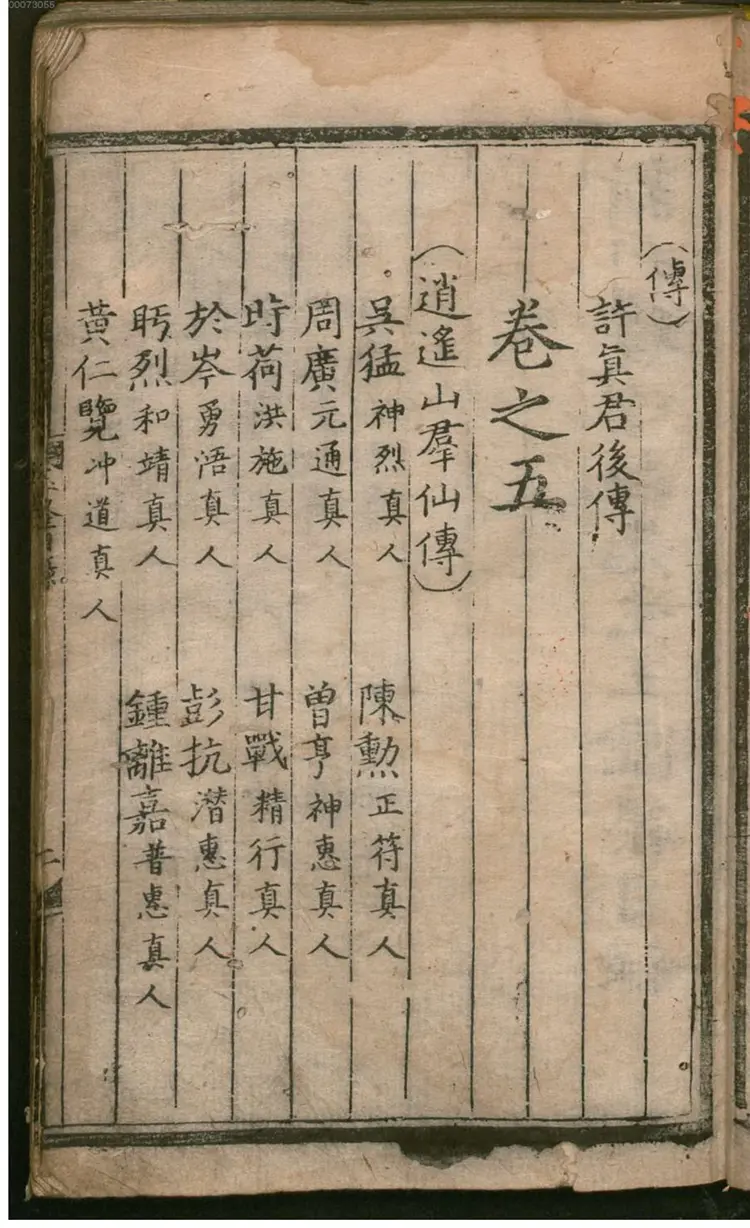 00073055
(傳)
許眞君後傳
卷之五
(逍遙山羣仙傳)
吳猛神烈真人 陳勲正符真人
周廣元通真人 曾亨神惠真人
時荷洪施真人 甘戰精行真人
於岑勇悟真人 彭抗潛惠真人
盱烈和靖真人 鍾離嘉普惠真人
黃仁覽冲道真人